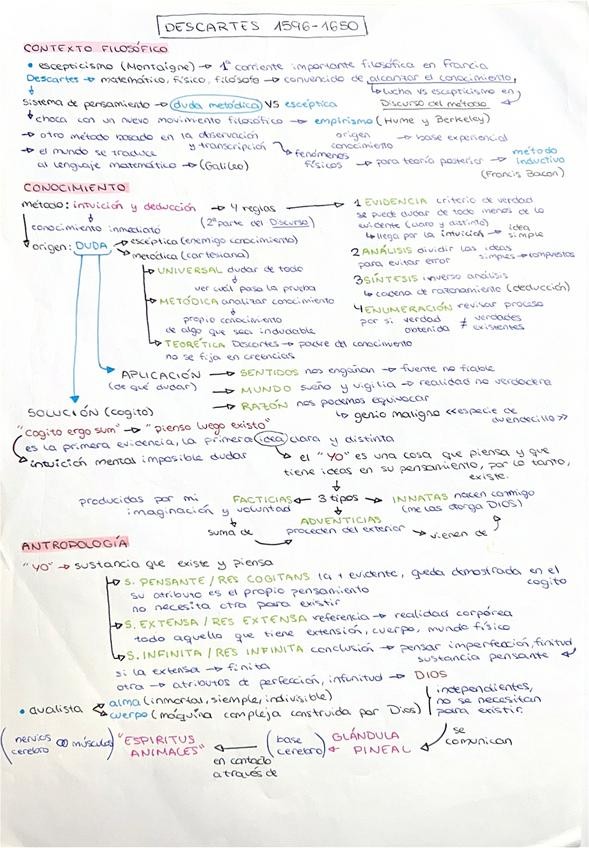 DESCARTES 1596-1650
CONTEXTO FILOSÓFICO
• escepticismo (Montaigne) → 1ª corriente importante filosófica en Francia
Descartes → matemático, físico, filósofo → convencido de alcanzar el conocimiento,
↳ lucha vs escepticismo en
Sistema de pensamiento → duda metódica VS escéptica
Discurso del método
↳ choca con un nuevo movimiento filosófico → empirismo (Hume y Berkeley)
→ otro método basado en la observación y transcripción
origen conocimiento → base experiencial
→ el mundo se traduce al lenguaje matemático → (Galileo)
fenómenos físicos → para teoría posterior → método inductivo
(Francis Bacon)
CONOCIMIENTO
método: intuición y deducción → 4 reglas
(2ª parte del Discurso)
conocimiento inmediato
origen: DUDA → escéptica (enemigo conocimiento)
→ metódica (cartesiana)
→ UNIVERSAL dudar de todo
ver cuál pasa la prueba
→ METÓDICA analizar conocimiento
propio conocimiento
de algo que sea indudable
→ TEORÉTICA Descartes → padre del conocimiento
no se fija en creencias
1 EVIDENCIA criterio de verdad
se puede dudar de todo menos de lo
evidente (claro y distinto)
↳ llega por la intuición → idea simple
2 ANÁLISIS dividir las ideas
para evitar error simples → compuestas
3 SÍNTESIS inverso análisis
↳ cadena de razonamiento (deducción)
4 ENUMERACIÓN revisar proceso
por si verdad obtenida ≠ verdades existentes
APLICACIÓN → SENTIDOS nos engañan → fuente no fiable
(de qué dudar) → MUNDO sueño y vigilia → realidad no verdadera
→ RAZÓN nos podemos equivocar
↳ genio maligno <<especie de duendecillo>>
SOLUCIÓN (cogito)
"Cogito ergo sum" → "pienso luego existo"
es la primera evidencia, la primera idea clara y distinta
↳ intuición mental imposible dudar
el "YO" es una cosa que piensa y que
tiene ideas en su pensamiento, por lo tanto,
existe.
producidas por mi imaginación y voluntad
FACTICIAS ← 3 tipos → INNATAS nacen conmigo
(me las otorga DIOS)
ADVENTICIAS
suma de
proceden del exterior → vienen de
ANTROPOLOGÍA
"YO" → sustancia que existe y piensa
→ S. PENSANTE / RES COGITANS la + evidente, queda demostrada en el cogito
su atributo es el propio pensamiento
no necesita otra para existir
→ S. EXTENSA / RES EXTENSA referencia → realidad corpórea
todo aquello que tiene extensión, cuerpo, mundo físico
→ S. INFINITA / RES INFINITA conclusión → pensar imperfección, finitud
sustancia pensante
si la extensa → finita
otra → atributos de perfección, infinitud → DIOS
• dualista → alma (inmortal, simple, indivisible)
→ cuerpo (máquina compleja construida por Dios)
independientes,
no se necesitan
para existir.
se comunican
(nervios cerebro ∞ músculos) "ESPIRITUS ANIMALES" ← (base cerebro) ← GLÁNDULA PINEAL
en contacto
a través de